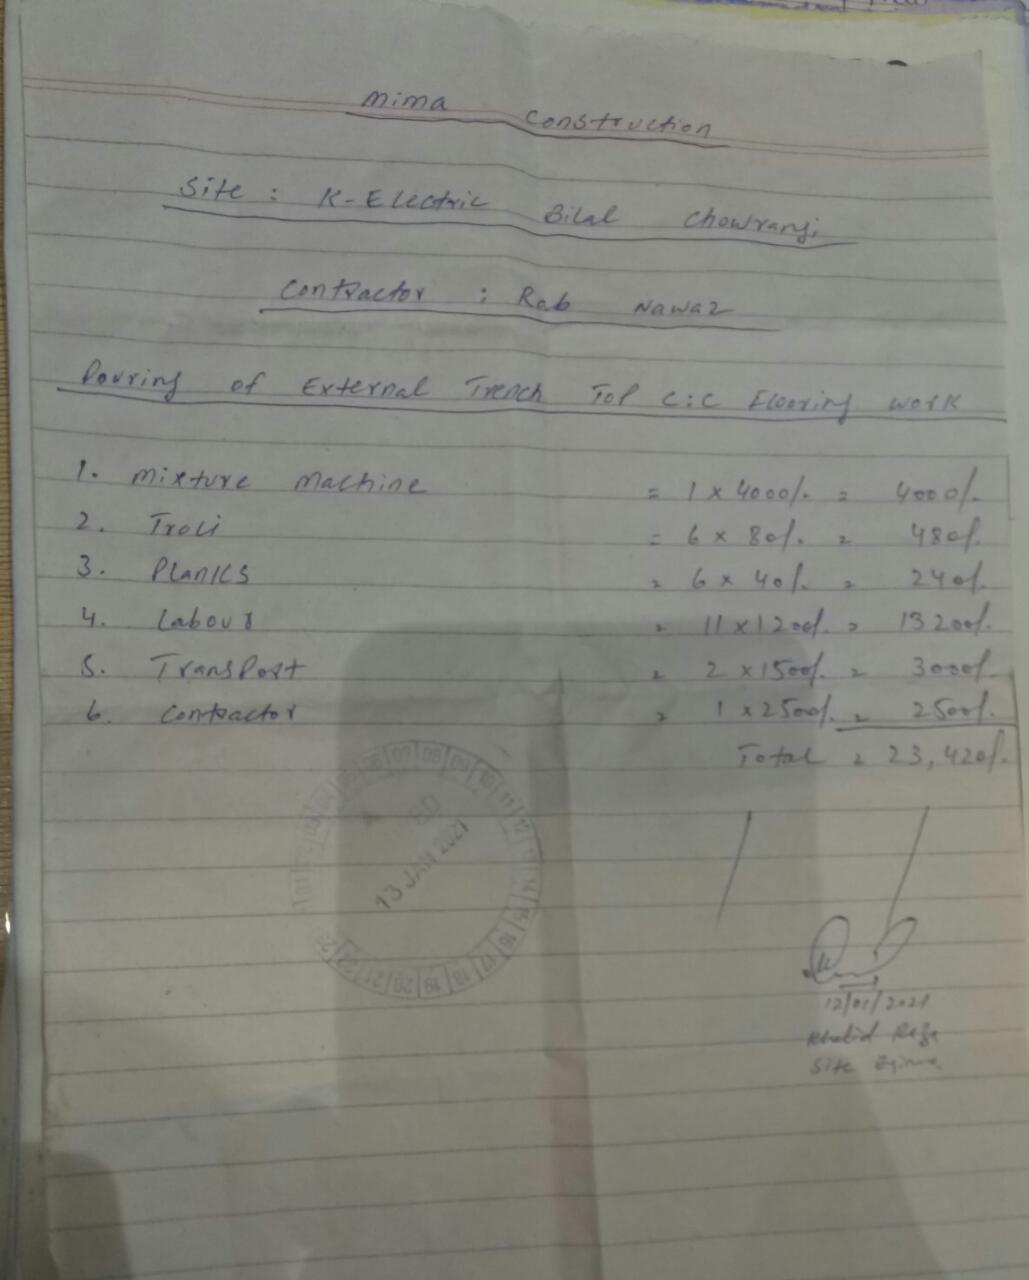 Mima Construction
Site : K-Electric Bilal Chowrangi
Contractor : Rab Nawaz
Pouring of External Trench Top C:C Flooring Work
1. Mixture Machine = 1 x 4000/. = 4000/.
2. Troli = 6 x 80/. = 480/.
3. Planks = 6 x 40/. = 240/.
4. Labour = 11 x 1200/. = 13200/.
5. Transport = 2 x 1500/. = 3000/.
6. Contractor = 1 x 2500/. = 2500/.
Total = 23,420/.
07 08 09 10 11 12
13 JAN 2021
14 15 16 17 18 19 20 21 22 23
12/01/2021
Khalid Raza
Site